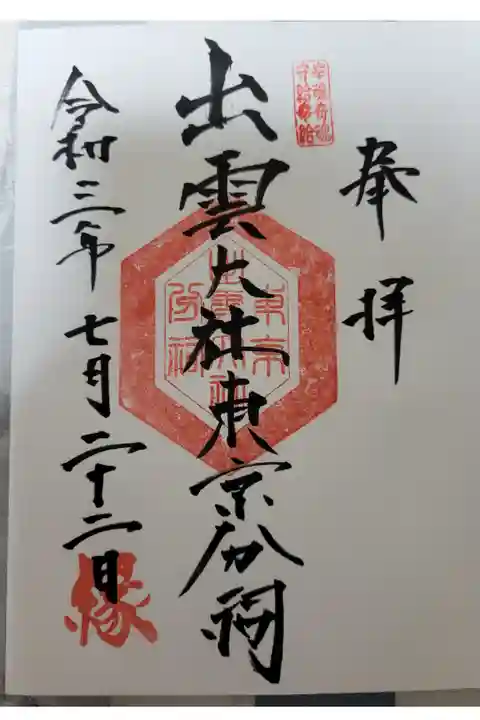 奉拝
出雲大社東京分祠
東京
出雲大社
分祠
令和三年七月二十二日
縁